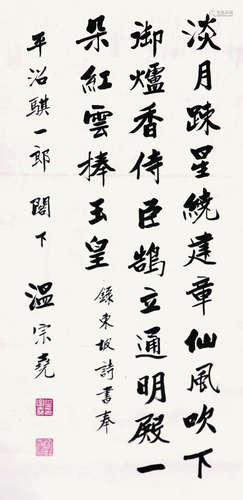 淡月踈星繞建章仙風吹下
御爐香侍臣鵠立通明殿一
朵紅雲捧玉皇
錄東坡詩書奉
平沼騏一郎閣下
溫宗堯